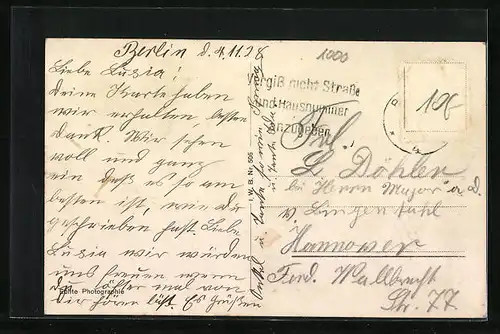 Berlin d. 4.11.28
Liebe Lusia!
deine Karte haben
wir erhalten besten
Dank. Wir sehen
woll und ganz
ein daß es so am
besten ist, wie du
geschrieben hast. Liebe
Lusia wir würden
uns freuen wenn
du öfter mal von
dir hören läßt. Es Grüßen
Onkel u. Tante
u. Tante
Echte Photographie
I. W. B. Nr. 606
1000
Vergiß nicht Straße
und Hausnummer
anzugeben
106
Frl.
L. Döhler
bei Herrn Major a. D.
v. Lingen
Hannover
Ferd. Wallbrecht
Str. 77